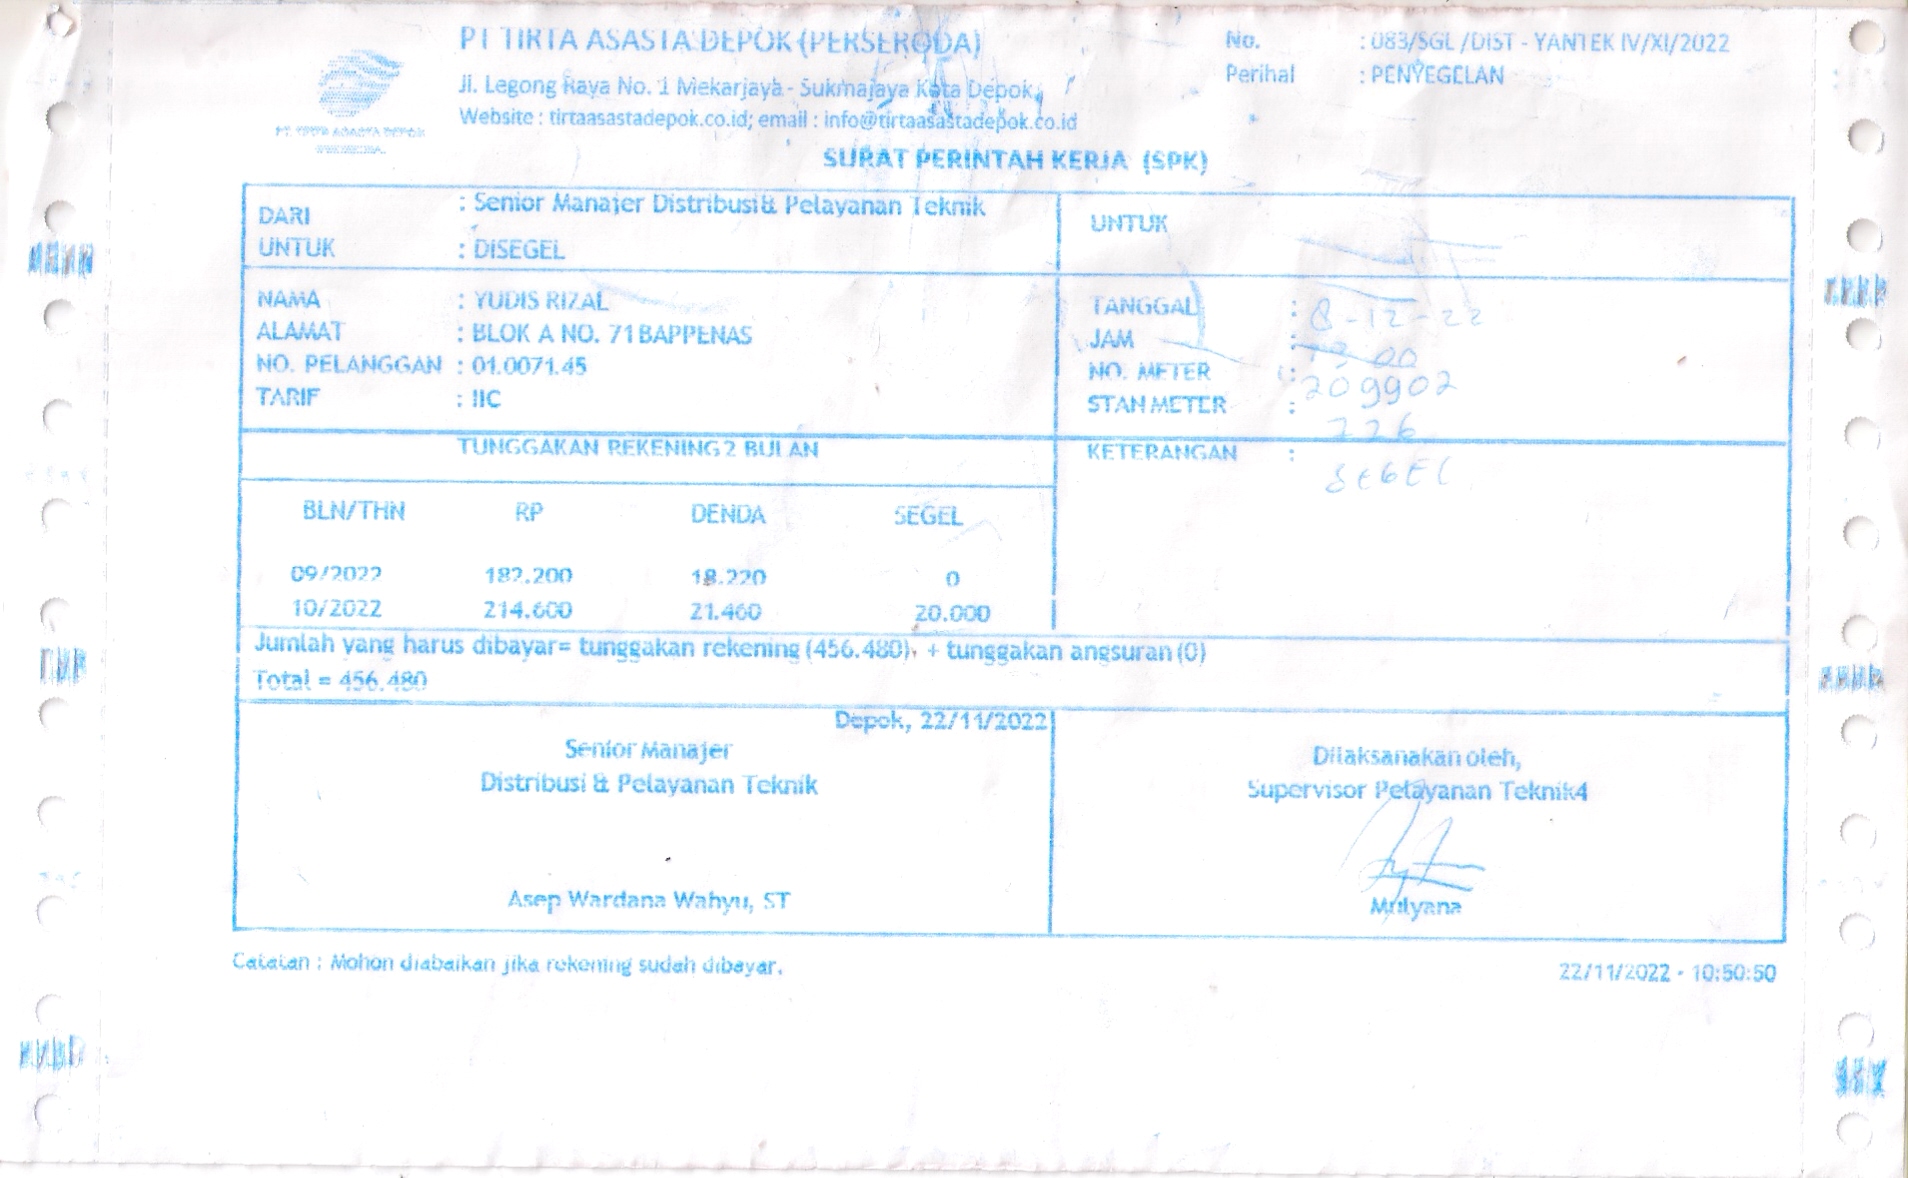 PT TIRTA ASASTA DEPOK (PERSERODA)
Jl. Legong Raya No. 1 Mekarjaya - Sukmajaya Kota Depok
Website : tirtaasastadepok.co.id; email : info@tirtaasastadepok.co.id
No. : 083/SGL /DIST - YANTEK IV/XI/2022
Perihal : PENYEGELAN
PT. TIRTA ASASTA DEPOK
SURAT PERINTAH KERJA (SPK)
DARI : Senior Manajer Distribusi & Pelayanan Teknik
UNTUK : DISEGEL
UNTUK
NAMA : YUDIS RIZAL
ALAMAT : BLOK A NO. 71 BAPPENAS
NO. PELANGGAN : 01.0071.45
TARIF : IIC
TANGGAL : 8-12-22
JAM : 13 00
NO. METER : 209902
STAN METER : 226
TUNGGAKAN REKENING 2 BULAN
KETERANGAN :
SEGEL
BLN/THN RP DENDA SEGEL
09/2022 182.200 18.220 0
10/2022 214.600 21.460 20.000
Jumlah yang harus dibayar= tunggakan rekening (456.480). + tunggakan angsuran (0)
Total = 456.480
Depok, 22/11/2022
Senior Manajer
Distribusi & Pelayanan Teknik
Asep Wardana Wahyu, ST
Dilaksanakan oleh,
Supervisor Pelayanan Teknik4
Mulyana
Catatan : Mohon diabaikan jika rekening sudah dibayar.
22/11/2022 - 10:50:50